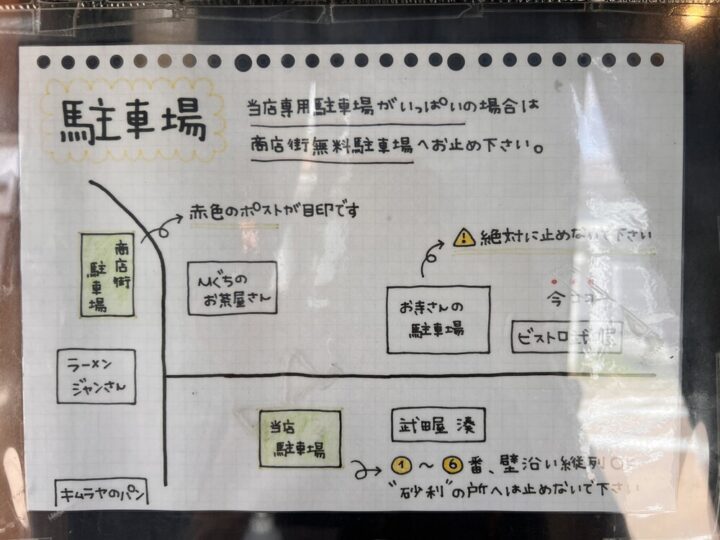 駐車場
当店専用駐車場がいっぱいの場合は
商店街無料駐車場へお止め下さい。
赤色のポストが目印です
⚠絶対に止めないで下さい
商店街
駐車場
ひぐちの
お茶屋さん
お寺さんの
駐車場
今ココ
ビストロ
ラーメン
ジャンさん
当店
駐車場
武田屋 湊
①～⑥番、壁沿い縦列
"砂利"の所へは止めないで下さい
キムラヤのパン